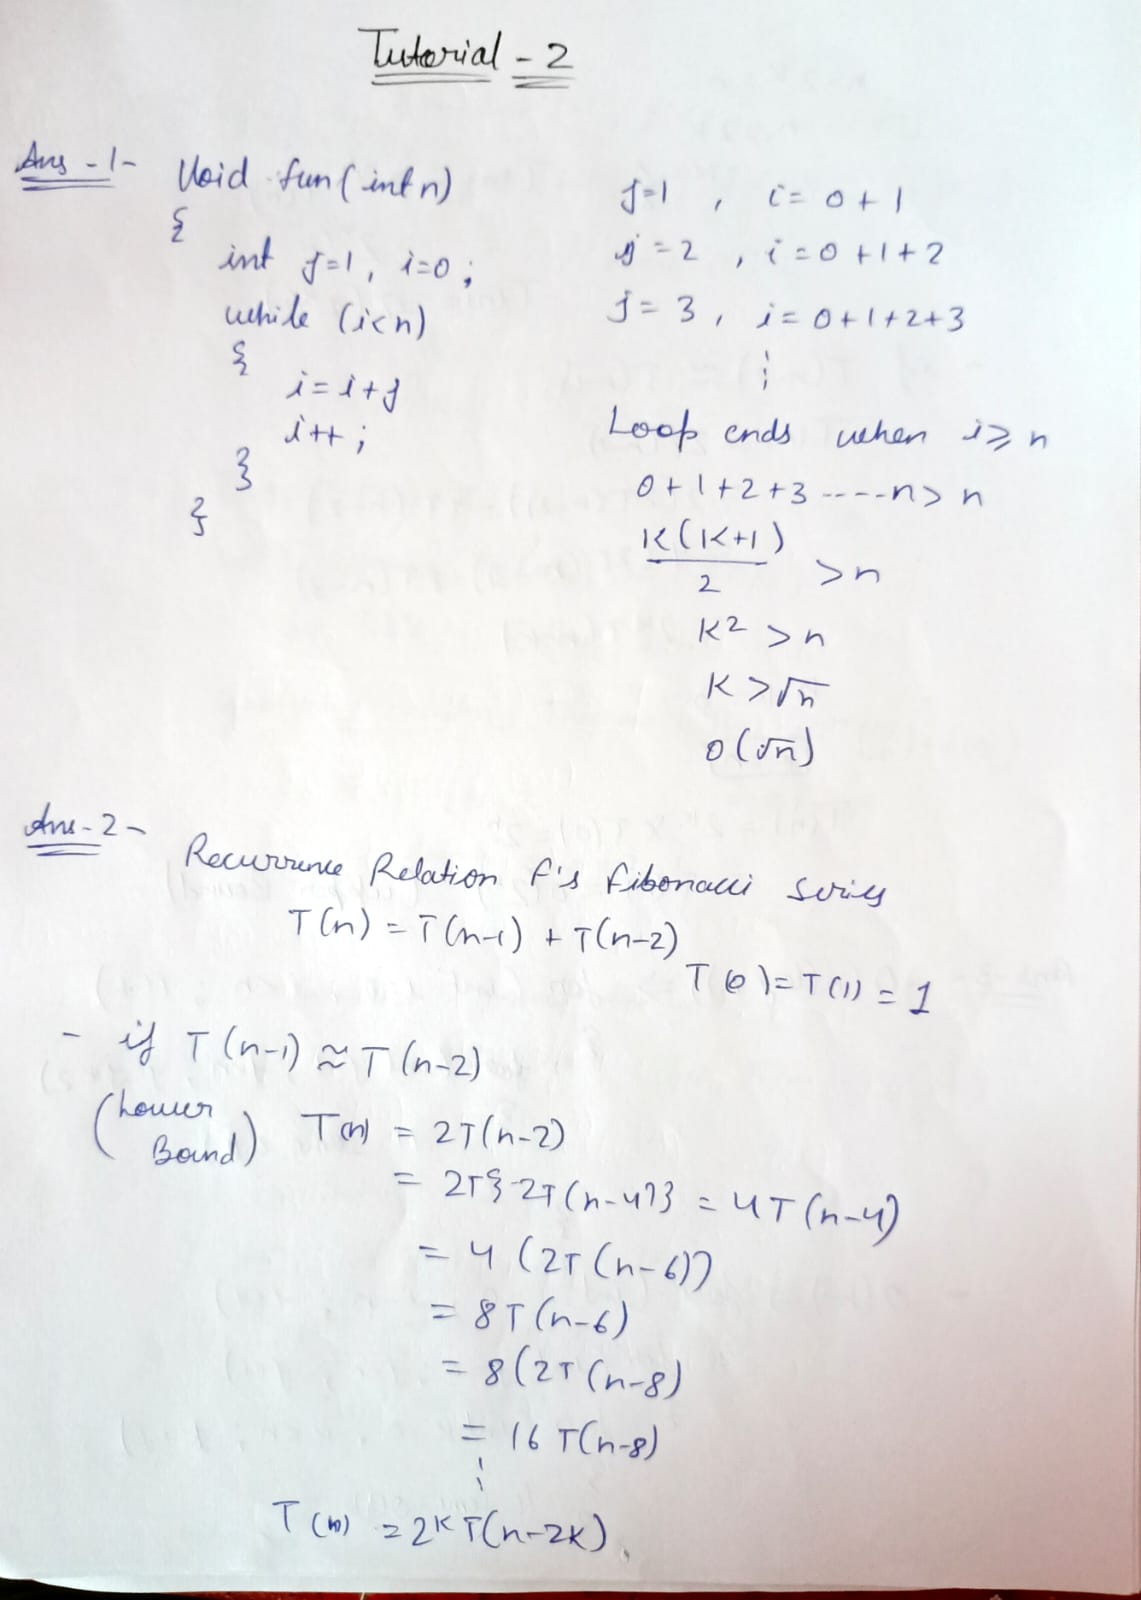 Tutorial - 2
Ans - 1 -
Void fun(int n)
{
int j=1, i=0;
while (i<n)
{
i=i+j
i++;
}
}
j=1 , i= 0+1
j=2 , i=0+1+2
j=3 , i=0+1+2+3
Loop ends when i≥n
0+1+2+3 -----n>n
K(K+1)
2
>n
K² >n
K >√n
O(√n)
Ans - 2 -
Recurrence Relation f's fibonacci series
T(n) = T(n-1) + T(n-2)
T(0)=T(1) = 1
- if T(n-1) ≈ T(n-2)
(Lower Bound) T(n) = 2T(n-2)
= 2T{2T(n-4)} = 4T(n-4)
= 4 (2T(n-6))
= 8T(n-6)
= 8(2T(n-8)
= 16 T(n-8)
T(n) = 2ᴷ T(n-2K)